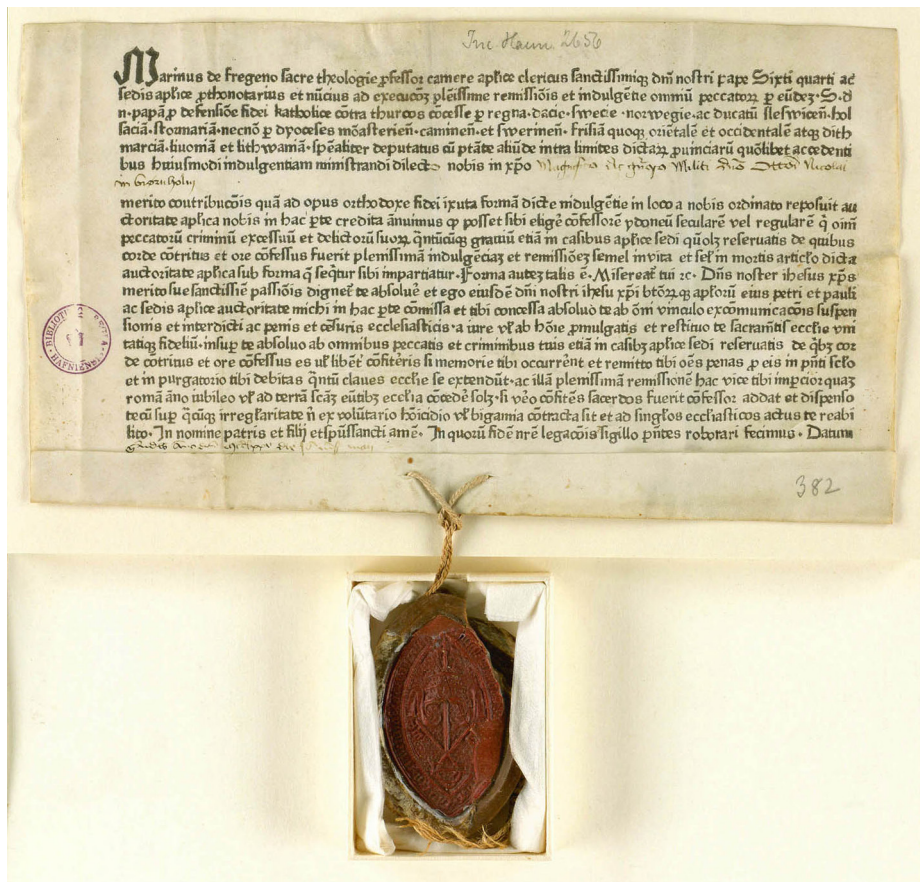 Inc. Haun. 2656
Marinus de Fregeno sacre theologie ꝓfessor camere aplice clericus sanctissimiqꝫ dn̄i nostri pape Sixti quarti ac
sedis aplice ꝓthonotarius et nūcius ad execucōꝫ plēissime remissiōis et indulgētie omniū peccatoꝝ ꝑ eūdeꝫ·S·d
n·papā ꝓ defensiōe fidei katholice cōtra thurcos cōcesse ꝑ regna·dacie·swecie·norwegie·ac ducatū sleswicen̄·hol
saciā·stormariā·necnō ꝑ dyoceses mōasterien̄·caminen̄·et swerinen̄·frisiā quoqꝫ oriētalē et occidentalē atqꝫ dith
marciā·liuoniā et lithwaniā·spēaliter deputatus cū ptāte aliūde intra limites dictaꝝ ꝓuinciarū quōlibet accedenti
bus huiusmodi indulgentiam ministrandi dilecto nobis in xpō Militi Nicolai
merito contribucōis quā ad opus orthodoxe fidei iuxta formā dicte indulgētie in loco a nobis ordinato reposuit au
ctoritate aplica nobis in hac ꝑte credita ānuimus ꝙ posset sibi eligē cōfessorē ydoneū seculare vel regularē q̄ oīm
peccatorū criminū excessuū et delictorū suoꝝ quātūcūqꝫ grauiū etiā in casibus aplice sedi quōlꝫ reseruatis de quibus
corde cōtritus et ore cōfessus fuerit plenissimā indulgēciaꝫ et remissiōeꝫ semel in vita et sel̄ in mortis articl̄o dicta
auctoritate aplica sub forma q̄ seq̄tur sibi impartiatur·Forma auteꝫ talis ē·Misereat̄ tui ⁊c·Dn̄s noster ihesus xp̄s
merito sue sanctissīē passiōis dignet̄ te absoluē et ego eiusdē dn̄i nostri ihesu xp̄i btōꝝqꝫ apl̄orū eius petri et pauli
ac sedis aplice auctoritate michi in hac ꝑte cōmissa et tibi concessa absoluo te ab ōni vinculo excōmunicacōis suspen
sionis et interdicti ac penis et cēsuris ecclesiasticis·a iure vl̄ ab hōie ꝓmulgatis et restituo te sacramētis ecclie vni
tatiqꝫ fideliū·insuꝑ te absoluo ab omnibus peccatis et criminibus tuis etiā in casibꝫ aplice sedi reseruatis de q̄bꝫ cor
de cōtritus et ore cōfessus es vl̄ libēt̄ cōfitēris si memorie tibi occurrēnt et remitto tibi oēs penas ꝓ eis in pn̄ti scl̄o
et in purgatorio tibi debitas q̄ntū claues ecclie se extendūt·ac illā plenissimā remissionē hac vice tibi imꝑcior quaꝫ
romā āno iubileo vl̄ ad terrā scāꝫ eūtibꝫ ecclia cōcedē solꝫ·si vēo cōfitēs sacerdos fuerit cōfessor addat et dispenso
tecū suꝑ q̄cūqꝫ irregl̄aritate n̄ ex volūtario hōicidio vl̄ bigamia cōtracta sit et ad singl̄os eccl̄iasticos actus te reabi
lito·In nomine patris et filij et sp̄ūssancti amē·In quorū fidē nr̄e legacōis sigillo pn̄tes roborari fecimus·Datum
382